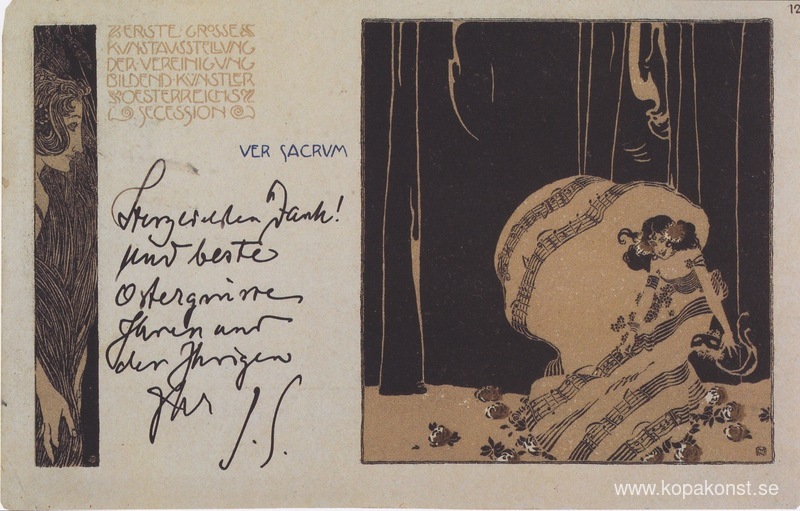 12
ERSTE GROSSE
KUNSTAUSSTELLUNG
DER VEREINIGUNG
BILDEND KÜNSTLER
OESTERREICHS
SECESSION
VER SACRVM
Herzlichen Dank!
und beste
Ostergrüsse
Ihnen und
den Ihrigen
Ihr
J. S.
www.kopakonst.se